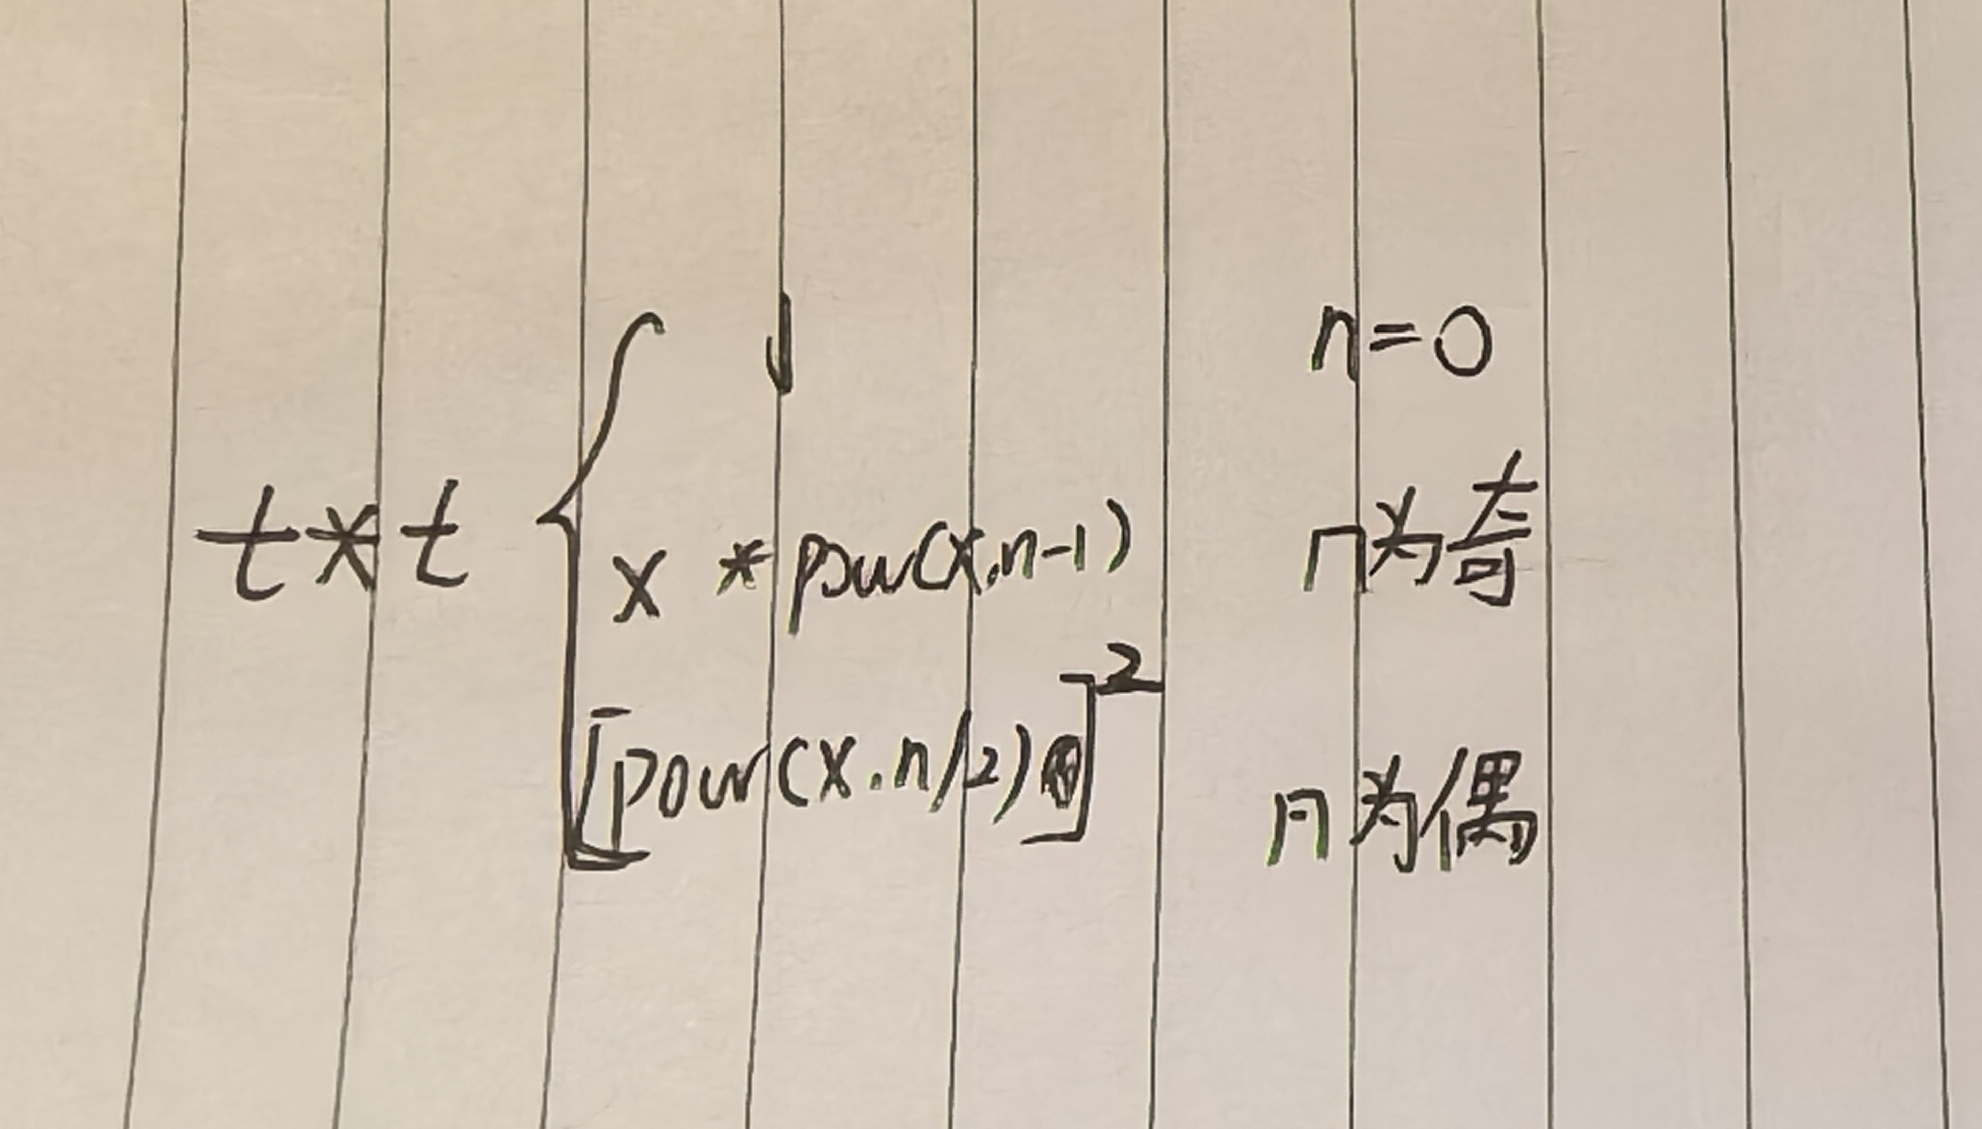 1 n=0
t*t { x * pow(x.n-1) n为奇
[pow(x.n/2)]² n为偶